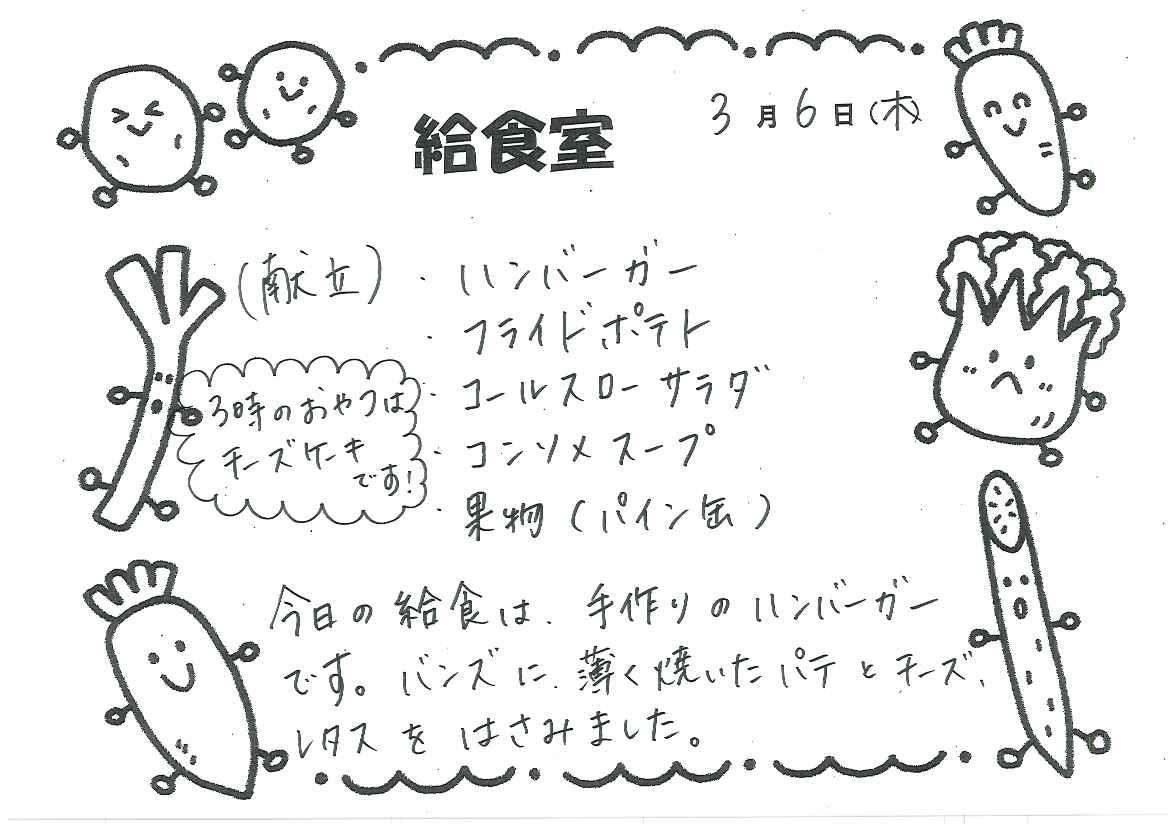 給食室
3月6日(木)
(献立)・ハンバーガー
・フライドポテト
・コールスローサラダ
・コンソメスープ
・果物(パイン缶)
3時のおやつは
チーズケーキ
です!
今日の給食は、手作りのハンバーガー
です。バンズに、薄く焼いたパテとチーズ、
レタスをはさみました。